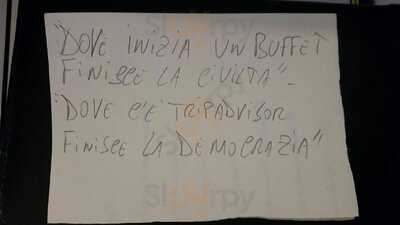 "DOVE INIZIA UN BUFFET
FINISCE LA CIVILTA" -
"DOVE C'E' TRIPADVISOR
FINISCE LA DEMOCRAZIA"
Sluurpy
Sluurpy